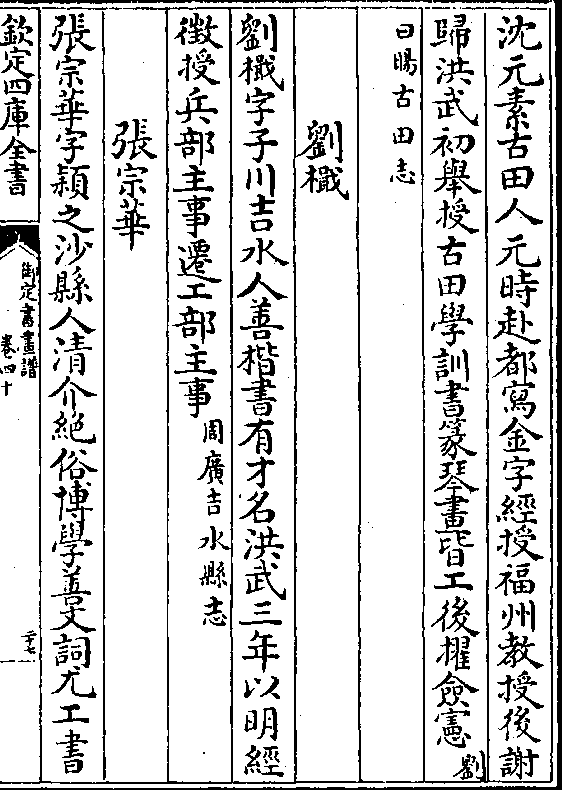 沈元素古田人元時赴都寫金字經授福州教授後謝
歸洪武初舉授古田學訓書篆琴畫皆工後擢僉憲劉
曰暘古田志
劉檝
劉檝字子川吉水人善楷書有才名洪武三年以明經
徴授兵部主事遷工部主事周廣吉水縣志
張宗華
張宗華字頴之沙縣人清介絶俗博學善文詞尤工書
欽定四庫全書
御定書畫譜
卷四十
二十七